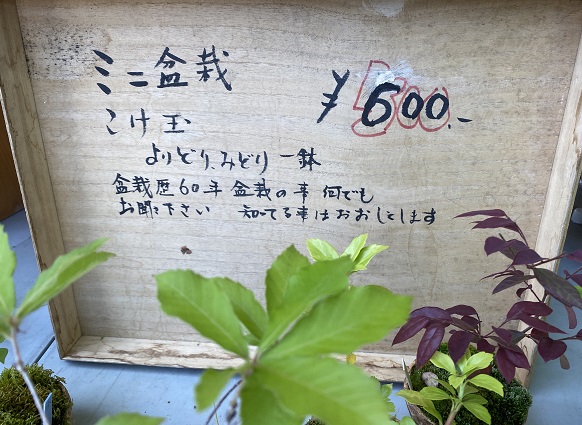 ミニ盆栽
¥600.-
こけ玉
よりどりみどり 一鉢
盆栽歴60年 盆栽の事 何でも
お聞き下さい 知ってる事はおおしえします